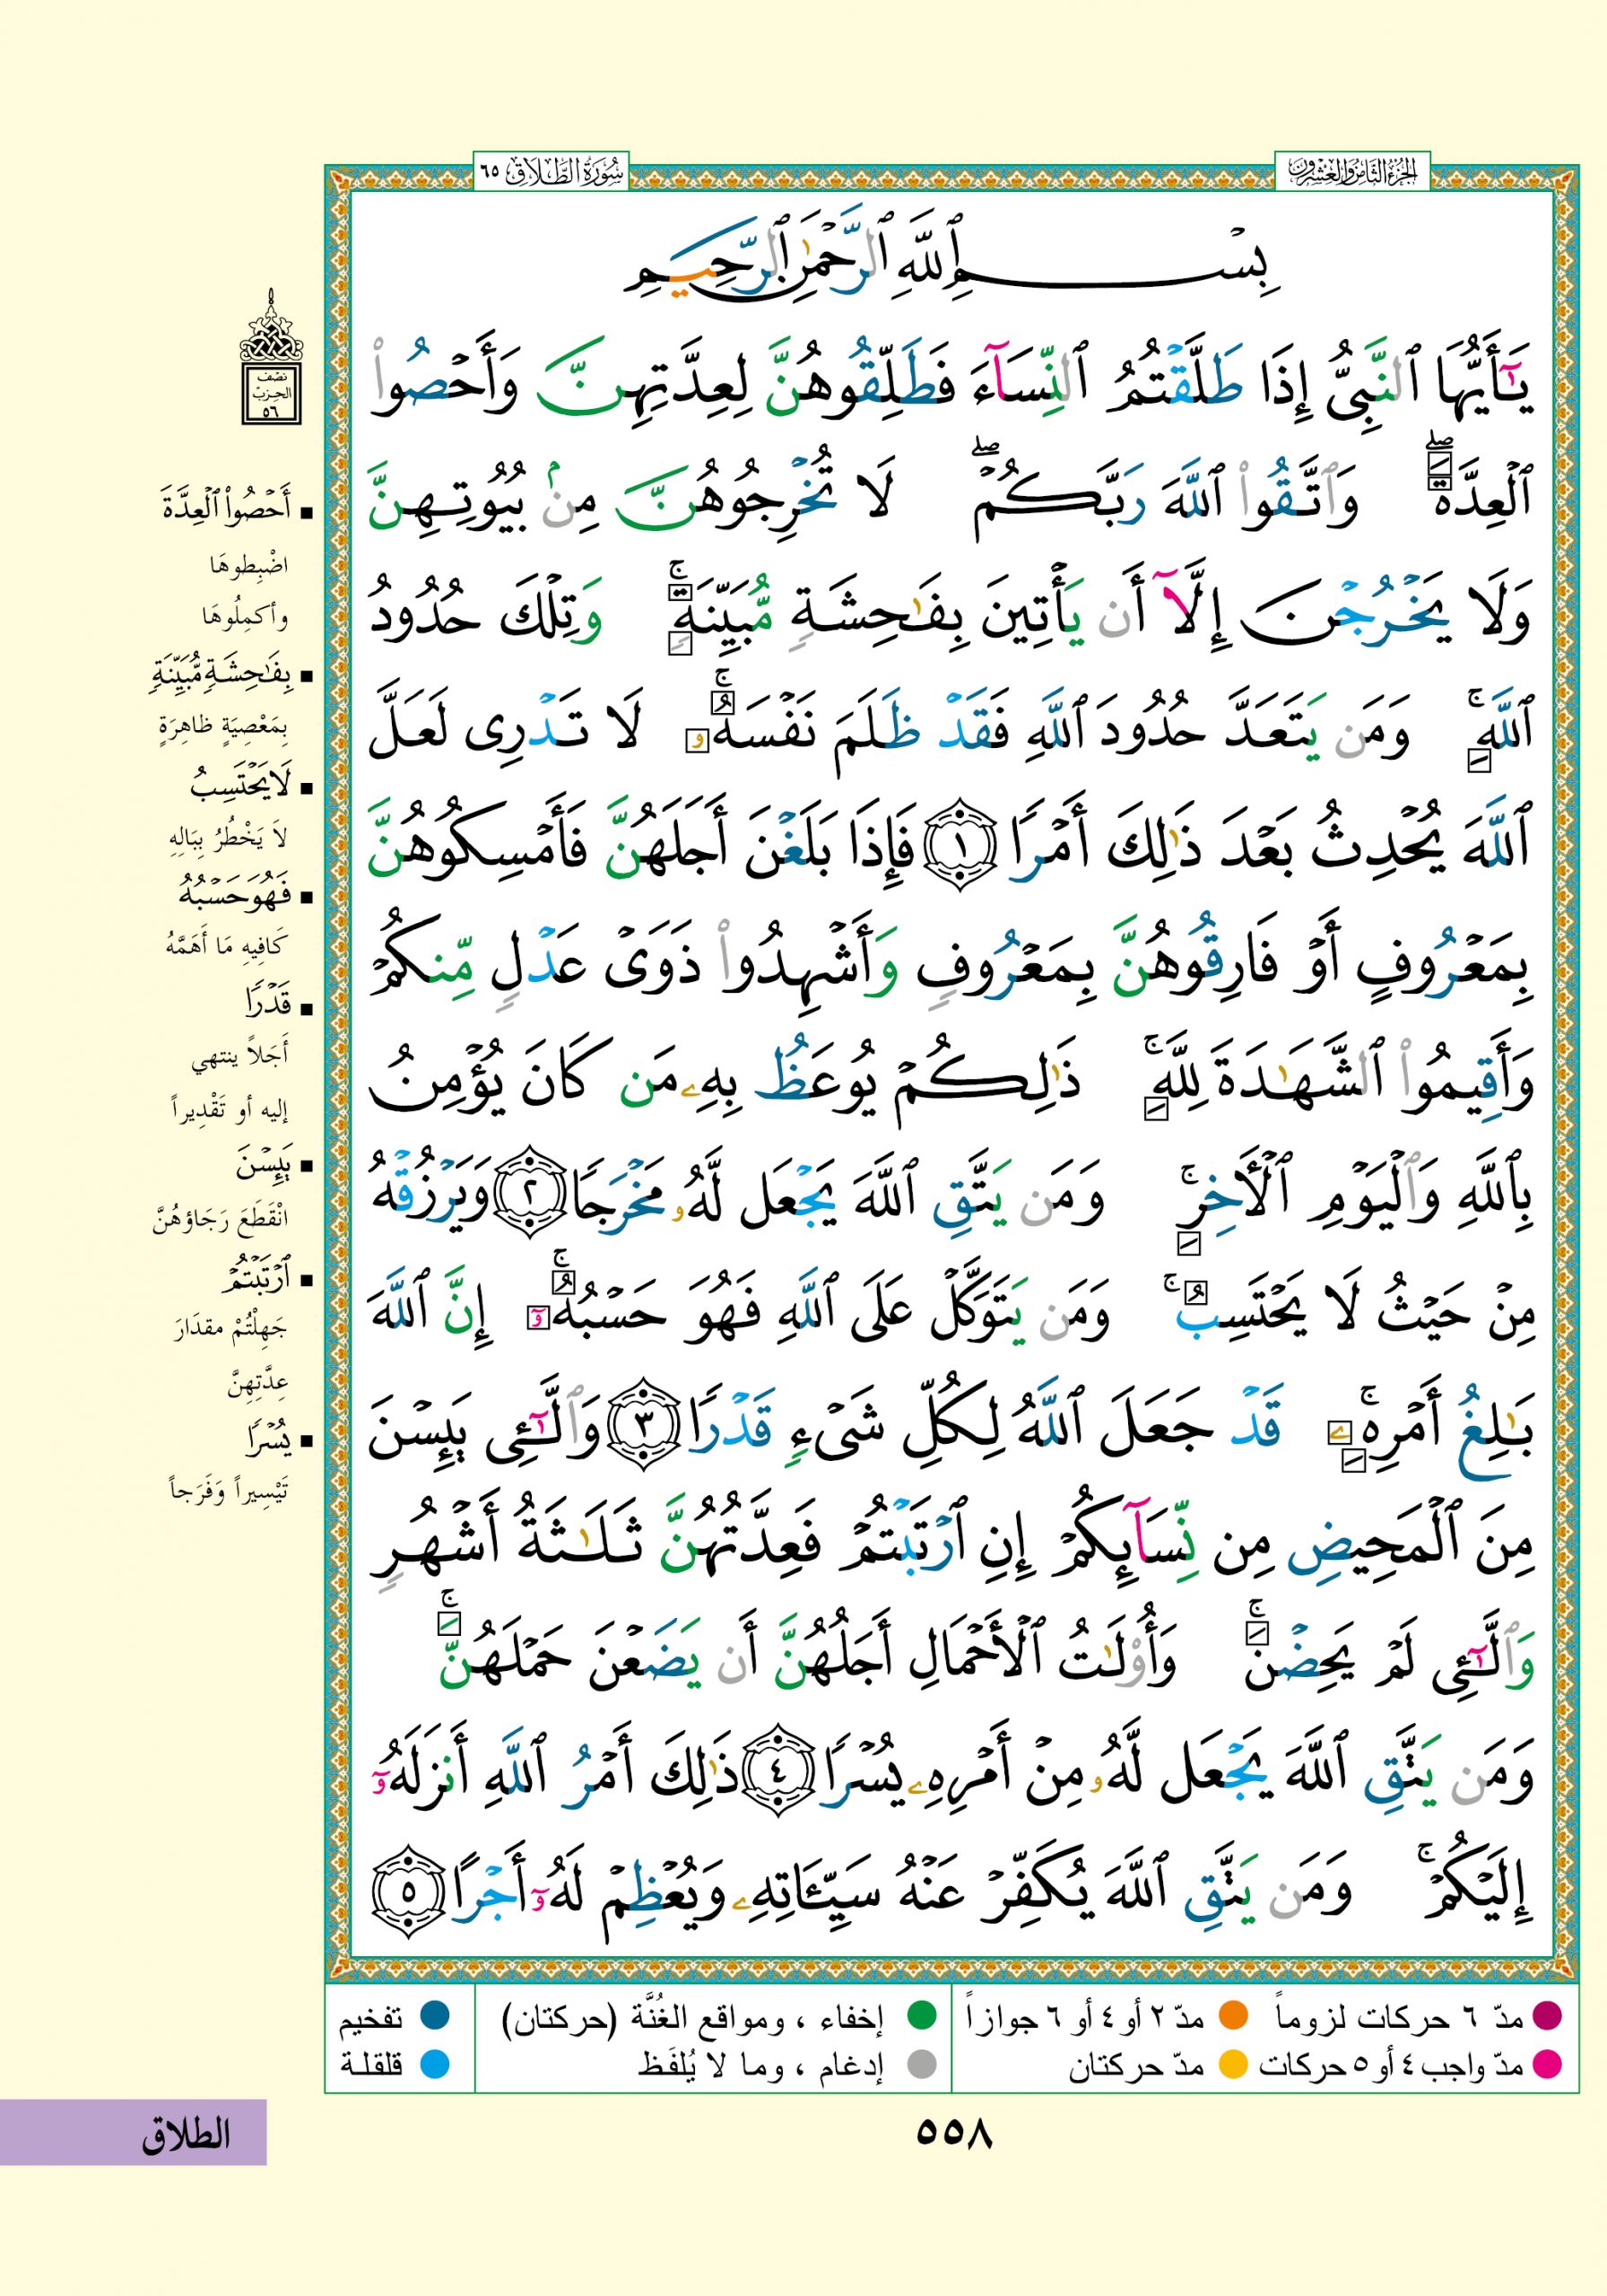 الجزء الثامن والعشرون
سورة الطلاق ٦٥
بِسْمِ ٱللَّهِ ٱلرَّحْمَٰنِ ٱلرَّحِيمِ
يَٰٓأَيُّهَا ٱلنَّبِىُّ إِذَا طَلَّقْتُمُ ٱلنِّسَآءَ فَطَلِّقُوهُنَّ لِعِدَّتِهِنَّ وَأَحْصُوا۟
ٱلْعِدَّةَ ۖ وَٱتَّقُوا۟ ٱللَّهَ رَبَّكُمْ ۖ لَا تُخْرِجُوهُنَّ مِنۢ بُيُوتِهِنَّ
وَلَا يَخْرُجْنَ إِلَّآ أَن يَأْتِينَ بِفَٰحِشَةٍ مُّبَيِّنَةٍ ۚ وَتِلْكَ حُدُودُ
ٱللَّهِ ۚ وَمَن يَتَعَدَّ حُدُودَ ٱللَّهِ فَقَدْ ظَلَمَ نَفْسَهُۥ ۚ لَا تَدْرِى لَعَلَّ
ٱللَّهَ يُحْدِثُ بَعْدَ ذَٰلِكَ أَمْرًا ١ فَإِذَا بَلَغْنَ أَجَلَهُنَّ فَأَمْسِكُوهُنَّ
بِمَعْرُوفٍ أَوْ فَارِقُوهُنَّ بِمَعْرُوفٍ وَأَشْهِدُوا۟ ذَوَىْ عَدْلٍ مِّنكُمْ
وَأَقِيمُوا۟ ٱلشَّهَٰدَةَ لِلَّهِ ۚ ذَٰلِكُمْ يُوعَظُ بِهِۦ مَن كَانَ يُؤْمِنُ
بِٱللَّهِ وَٱلْيَوْمِ ٱلْأَخِرِ ۚ وَمَن يَتَّقِ ٱللَّهَ يَجْعَل لَّهُۥ مَخْرَجًا ٢ وَيَرْزُقْهُ
مِنْ حَيْثُ لَا يَحْتَسِبُ ۚ وَمَن يَتَوَكَّلْ عَلَى ٱللَّهِ فَهُوَ حَسْبُهُۥٓ ۚ إِنَّ ٱللَّهَ
بَٰلِغُ أَمْرِهِۦ ۚ قَدْ جَعَلَ ٱللَّهُ لِكُلِّ شَىْءٍ قَدْرًا ٣ وَٱلَّٰٓـِٔى يَئِسْنَ
مِنَ ٱلْمَحِيضِ مِن نِّسَآئِكُمْ إِنِ ٱرْتَبْتُمْ فَعِدَّتُهُنَّ ثَلَٰثَةُ أَشْهُرٍ
وَٱلَّٰٓـِٔى لَمْ يَحِضْنَ ۚ وَأُو۟لَٰتُ ٱلْأَحْمَالِ أَجَلُهُنَّ أَن يَضَعْنَ حَمْلَهُنَّ ۚ
وَمَن يَتَّقِ ٱللَّهَ يَجْعَل لَّهُۥ مِنْ أَمْرِهِۦ يُسْرًا ٤ ذَٰلِكَ أَمْرُ ٱللَّهِ أَنزَلَهُۥٓ
إِلَيْكُمْ ۚ وَمَن يَتَّقِ ٱللَّهَ يُكَفِّرْ عَنْهُ سَيِّـَٔاتِهِۦ وَيُعْظِمْ لَهُۥٓ أَجْرًا ٥
نصف
الحزب
٥٦
أَحْصُوا۟ ٱلْعِدَّةَ
اضْبِطوهَا
وأكمِلُوهَا
بِفَٰحِشَةٍ مُّبَيِّنَةٍ
بِمَعْصِيَةٍ ظاهِرَةٍ
لَا يَحْتَسِبُ
لاَ يَخْطُرُ بِبَالِهِ
فَهُوَ حَسْبُهُ
كَافِيهِ مَا أَهَمَّهُ
قَدْرًا
أَجَلاً ينتهي
إليه أو تَقْدِيراً
يَئِسْنَ
انْقَطَعَ رَجَاؤهُنَّ
ٱرْتَبْتُمْ
جَهِلْتُمْ مقدَارَ
عِدَّتِهِنَّ
يُسْرًا
تَيْسِيراً وَفَرَجاً
مدّ ٦ حركات لزوماً
مدّ ٢ أو ٤ أو ٦ جوازاً
إخفاء ، ومواقع الغُنَّة (حركتان)
تفخيم
مدّ واجب ٤ أو ٥ حركات
مدّ حركتان
إدغام ، وما لا يُلفَظ
قلقلة
٥٥٨
الطلاق